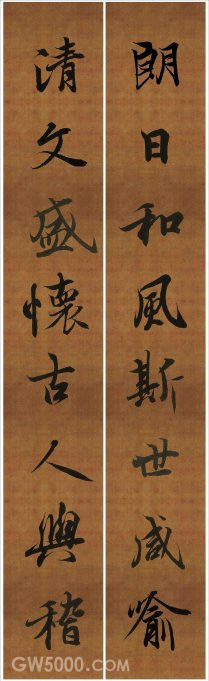 朗日和風斯世咸喻
清文盛懷古人與稽
GW5000.COM